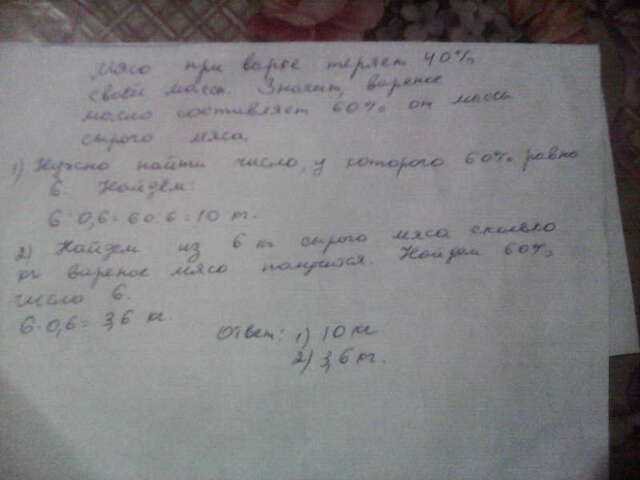 Мясо при варке теряет 40%
своей массы. Значит, вареное
масло составляет 60% от массы
сырого мяса.
1) Нужно найти число, у которого 60% равно
6. Найдем:
6:0,6=60:6=10 кг.
2) Найдем из 6 кг сырого мяса сколько
кг вареное мясо получится. Найдем 60%
число 6.
6·0,6=3,6 кг.
Ответ: 1) 10 кг
2) 3,6 кг.